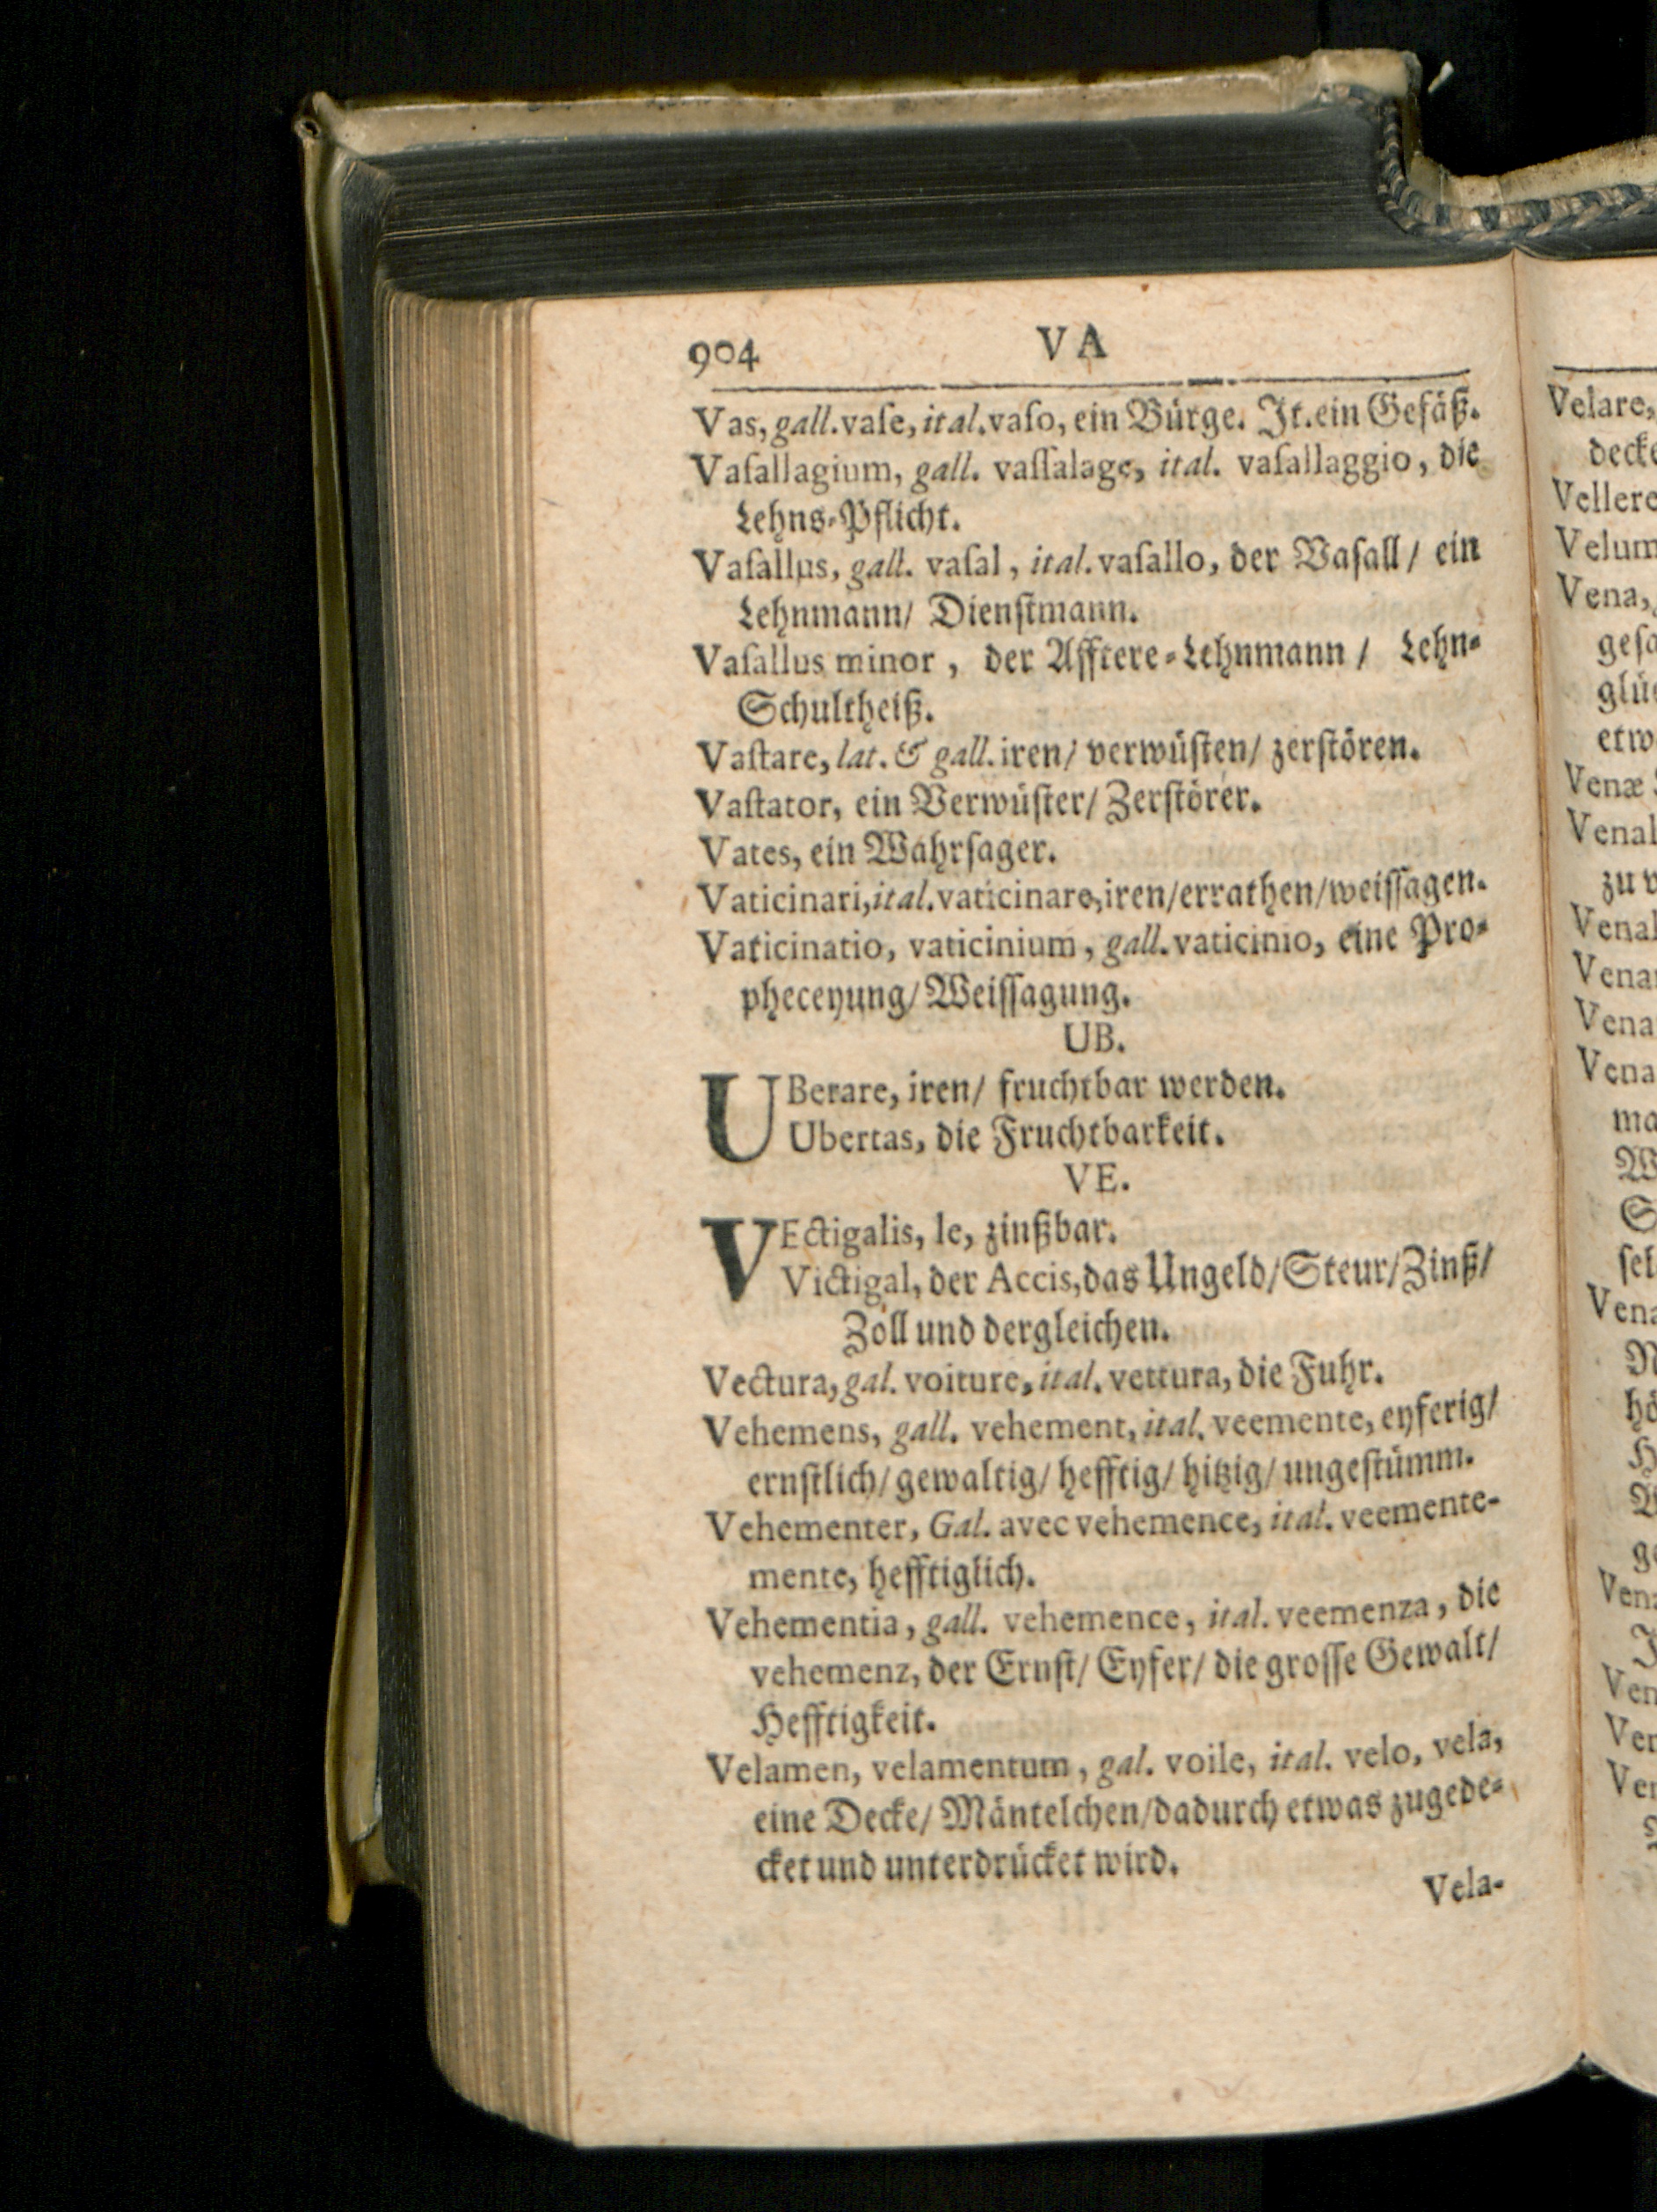 904 VA
Vas, gall. vaſe, ital. vaſo, ein Bürge. It. ein Gefäß.
Vaſallagium, gall. vaſſalage, ital. vaſallaggio, die
Lehns-Pflicht.
Vaſallus, gall. vaſal, ital. vaſallo, der Vaſall/ ein
Lehnmann/ Dienſtmann.
Vaſallus minor, der Afftere-Lehnmann/ Lehn-
Schultheiß.
Vaſtare, lat. & gall. iren/ verwüſten/ zerſtören.
Vaſtator, ein Verwüſter/ Zerſtörer.
Vates, ein Wahrſager.
Vaticinari, ital. vaticinare, iren/ errathen/ weiſſagen.
Vaticinatio, vaticinium, gall. vaticinio, eine Pro-
pheceyung/ Weiſſagung.
UB.
UBerare, iren/ fruchtbar werden.
Ubertas, die Fruchtbarkeit.
VE.
VEctigalis, le, zinßbar.
Victigal, der Accis, das Ungeld/ Steur/ Zinß/
Zoll und dergleichen.
Vectura, gal. voiture, ital. vettura, die Fuhr.
Vehemens, gall. vehement, ital. veemente, eyferig/
ernſtlich/ gewaltig/ hefftig/ hitzig/ ungeſtümm.
Vehementer, Gal. avec vehemence, ital. veemente-
mente, hefftiglich.
Vehementia, gall. vehemence, ital. veemenza, die
vehemenz, der Ernſt/ Eyfer/ die groſſe Gewalt/
Hefftigkeit.
Velamen, velamentum, gal. voile, ital. velo, vela,
eine Decke/ Mäntelchen/ dadurch etwas zugede-
cket und unterdrücket wird.
Vela-
Velare,
Vellere
Velum
Vena,
Venæ
zu